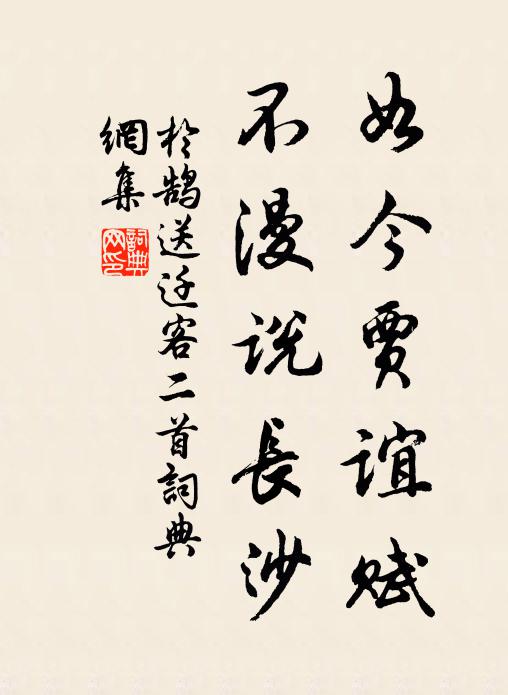 如今賈誼賦
不漫説長沙
於鵠送迁客二首詞典
網集
詞典
网印